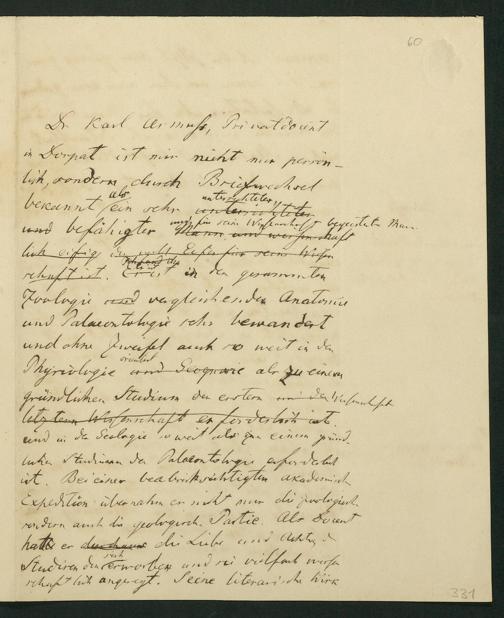 60
Dr Karl Asmuss, Privatdocent
in Dorpat ist mir nicht nur persön-
lich, sondern durch Briefwechsel
bekannt als ein sehr unterrichteter
und befähigter und für seine Wissenschaft begeisteter Mann
schaft ist. Er ist in der gesammten
Zoologie und vergleichenden Anatomie
und Palaeontologie sehr bewandert
und ohne Zweifel auch so weit in der
Physiologie und Geognosie orientirt als zu einem
gründlichen Studium der erstern
letztern Wissenschaft erforderlich ist
und in der Geologie so weit als zu einem gründ-
lichen Studium der Palaeontologie erforderlich
ist. Bei einer beabsichtigten akademisch
Expedition übernahm er nicht nur die zoologisch
sondern auch die geologisch. Partie. Als Docent
hatte er durchaus die Liebe und Achtung d
Studirenden sich erworben und sie vielfach wissen
schaftlich angeregt. Seine literarische Wirk
331